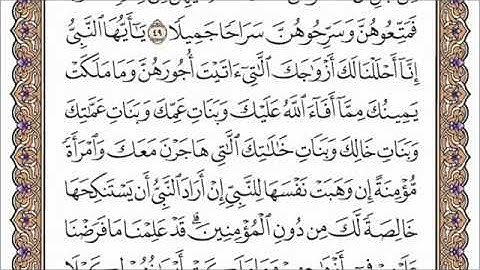 فَمَتِّعُوهُنَّ وَسَرِّحُوهُنَّ سَرَاحًا جَمِيلًا ٤٩ يَـٰٓأَيُّهَا ٱلنَّبِىُّ
إِنَّآ أَحْلَلْنَا لَكَ أَزْوَٰجَكَ ٱلَّـٰتِىٓ ءَاتَيْتَ أُجُورَهُنَّ وَمَا مَلَكَتْ
يَمِينُكَ مِمَّآ أَفَآءَ ٱللَّهُ عَلَيْكَ وَبَنَاتِ عَمِّكَ وَبَنَاتِ عَمَّـٰتِكَ
وَبَنَاتِ خَالِكَ وَبَنَاتِ خَـٰلَـٰتِكَ ٱلَّـٰتِى هَاجَرْنَ مَعَكَ وَٱمْرَأَةً
مُّؤْمِنَةً إِن وَهَبَتْ نَفْسَهَا لِلنَّبِىِّ إِنْ أَرَادَ ٱلنَّبِىُّ أَن يَسْتَنكِحَهَا
خَالِصَةً لَّكَ مِن دُونِ ٱلْمُؤْمِنِينَ ۗ قَدْ عَلِمْنَا مَا فَرَضْنَا